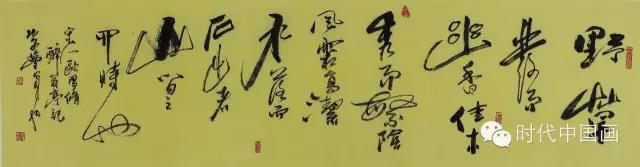 野芳
發而
幽香佳木
秀而繁陰
風霜高潔
水落而
石出者
山間之
四時也
宋人歐陽修
醉翁亭記
时代中国画